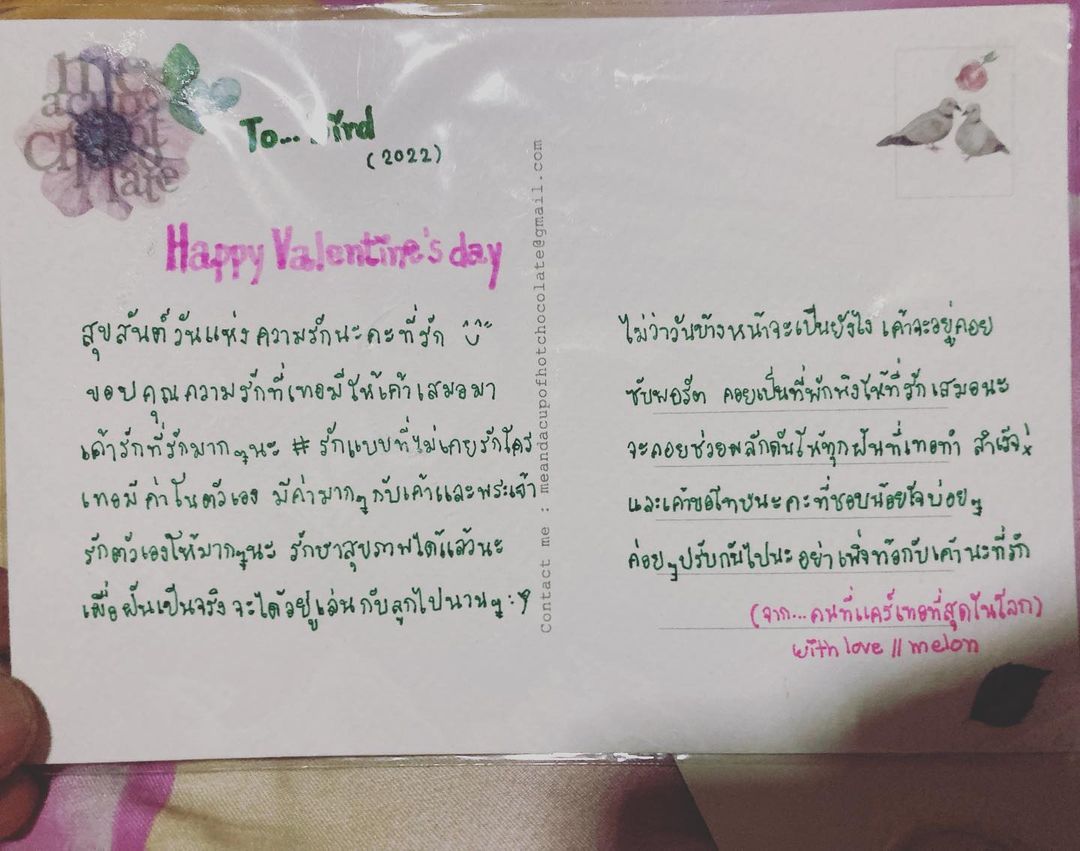 me
a cup of
Chocolate
To... bird
(2022)
Happy Valentine's day
สุขสันต์วันแห่งความรักนะคะที่รัก
ขอบคุณความรักที่เทอมีให้เค้าเสมอมา
เค้ารักที่รักมากๆนะ #รักแบบที่ไม่เคยรักใคร
เทอมีค่าในตัวเอง มีค่ามากๆกับเค้าและพระเจ้า
รักตัวเองให้มากๆนะ รักษาสุขภาพได้แล้วนะ
เผื่อฝันเป็นจริงจะได้อยู่เล่นกับลูกไปนานๆ :)
Contact me : meandacupofhotchocolate@gmail.com
ไม่ว่าวันข้างหน้าจะเป็นยังไง เค้าจะอยู่คอย
ซับพอร์ต คอยเป็นที่พักพิงให้ที่รักเสมอนะ
จะคอยช่วยผลักดันให้ทุกฝันที่เทอทำ สำเร็จ
และเค้าขอโทษนะคะที่ชอบน้อยใจบ่อยๆ
ค่อยๆปรับกันไปนะ อย่าเพิ่งท้อกับเค้านะที่รัก
(จาก...คนที่แคร์เทอที่สุดในโลก)
with love // melon